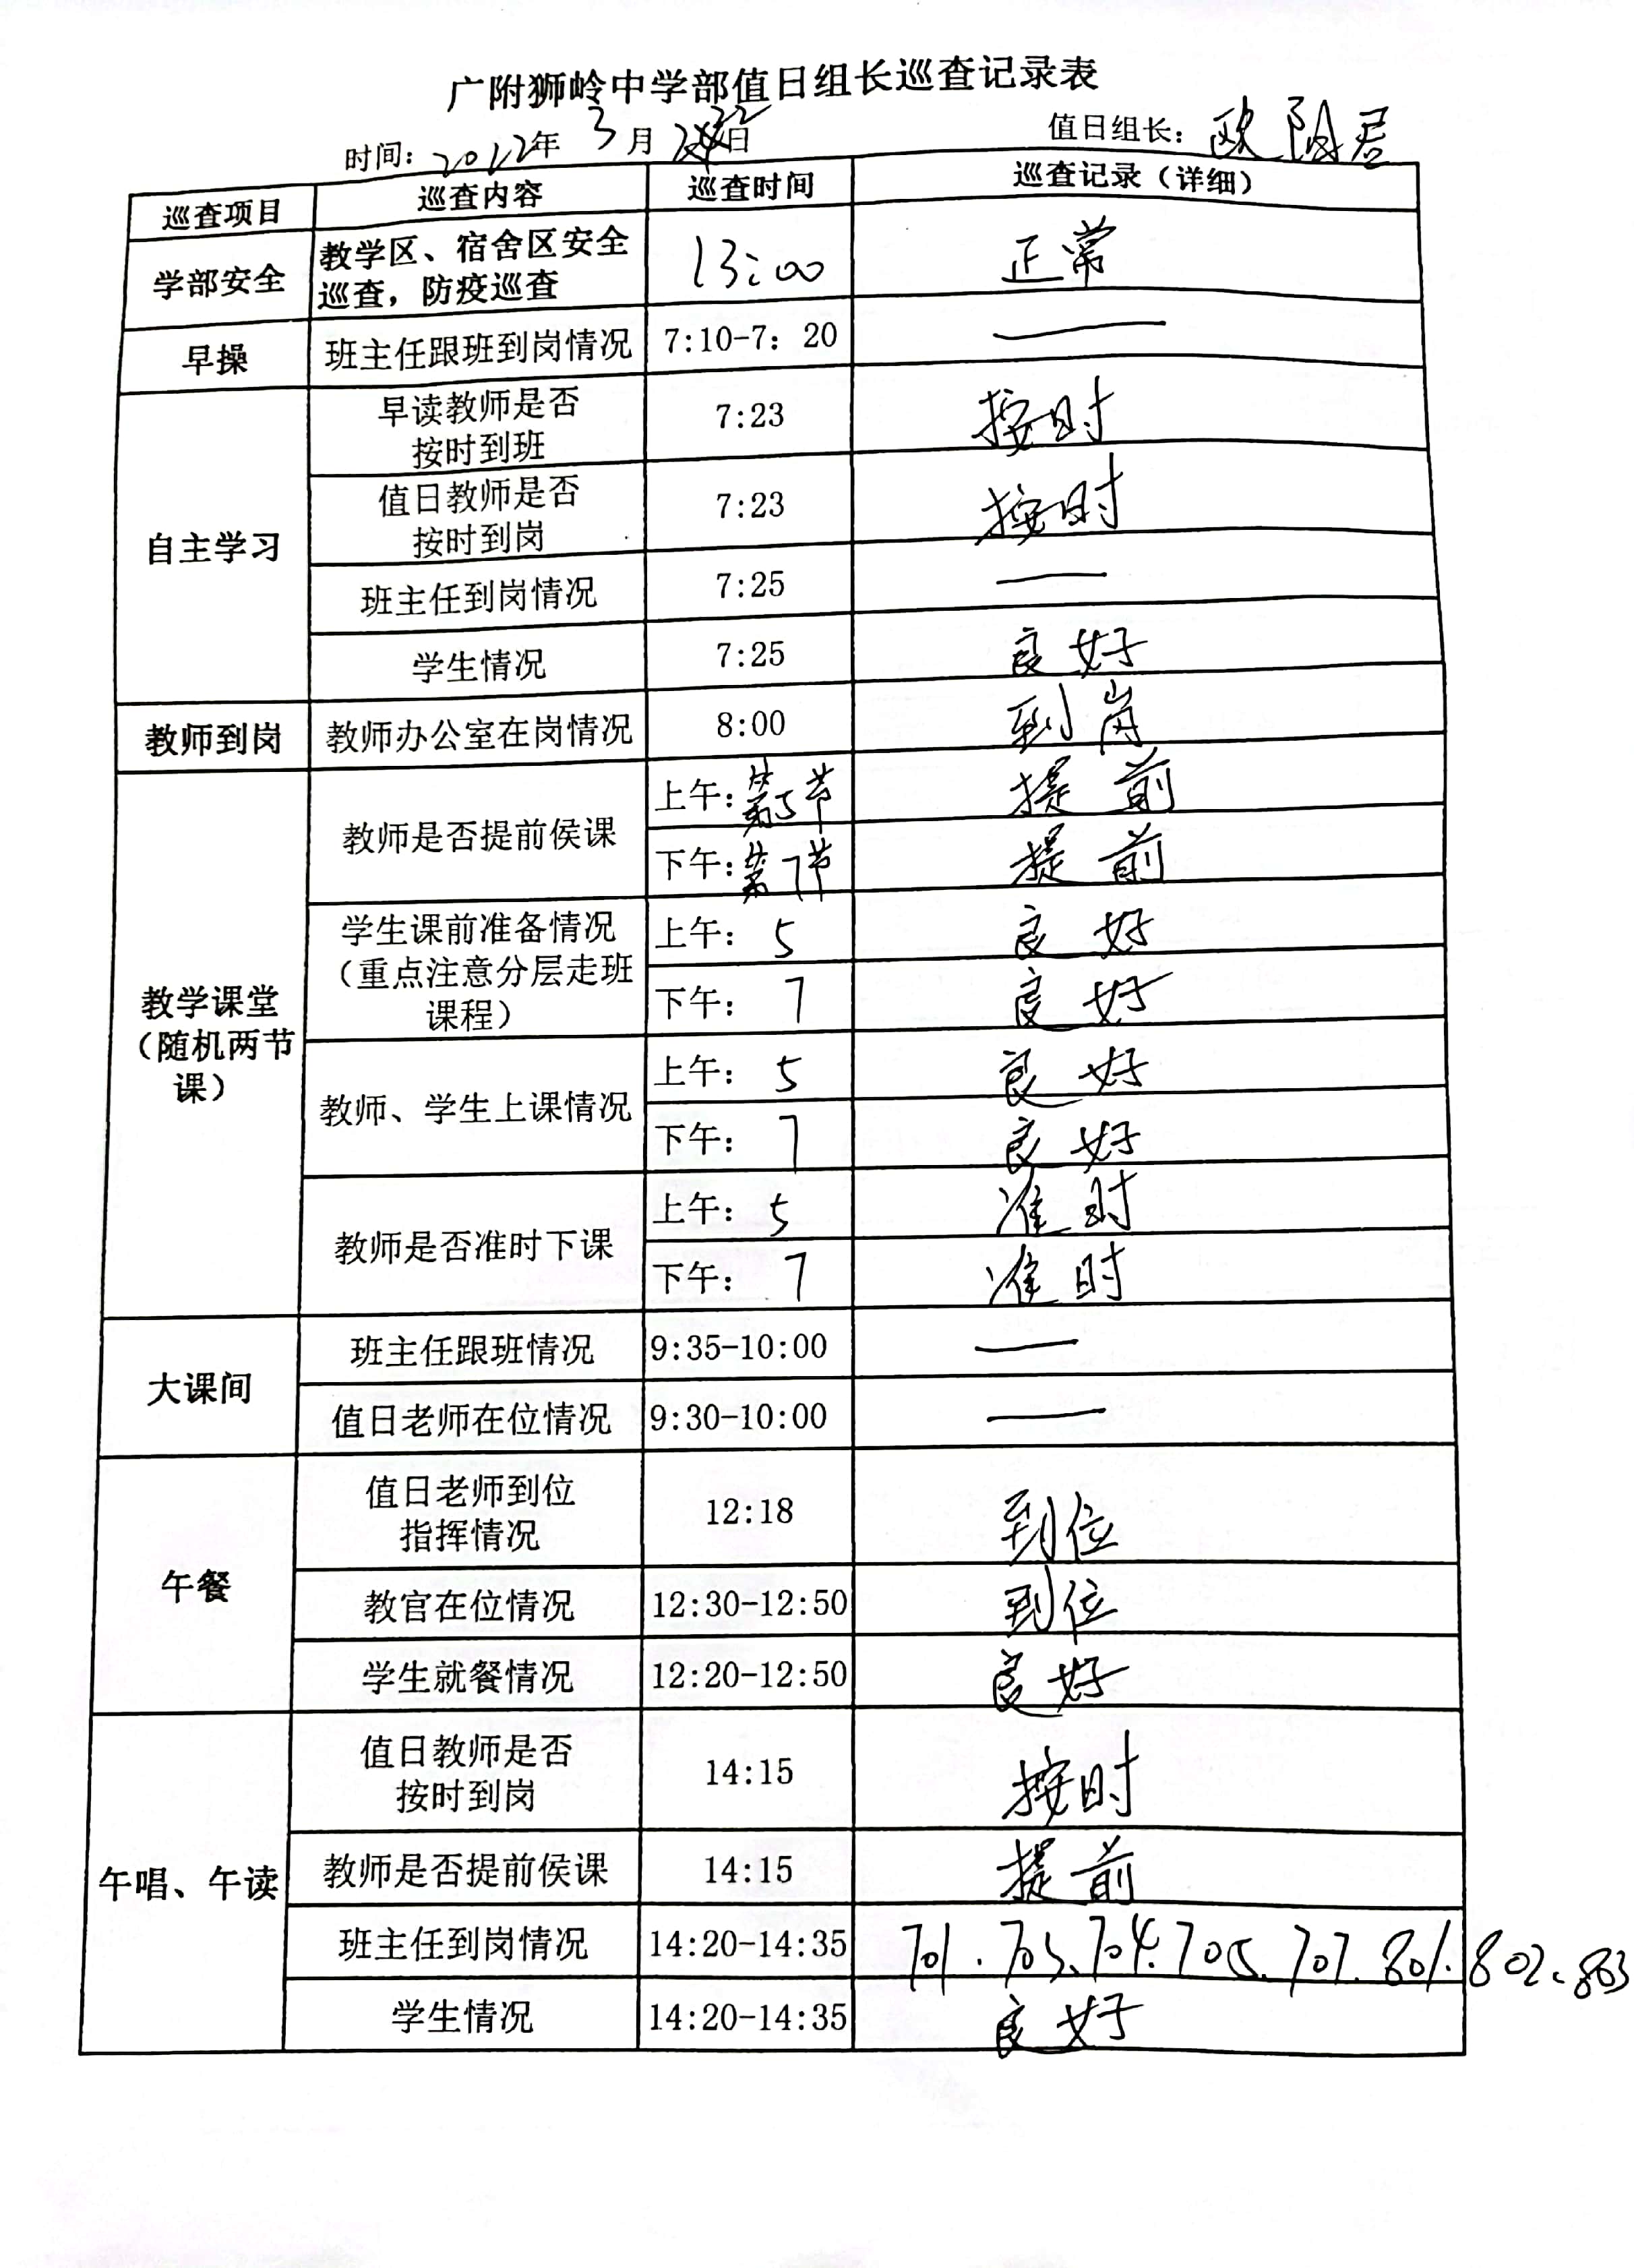 广附狮岭中学部值日组长巡查记录表
时间: 2022年 3月 22日 值日组长: 欧阳君
巡查项目 巡查内容 巡查时间 巡查记录（详细）
学部安全 教学区、宿舍区安全 13:00 正常
巡查，防疫巡查
早操 班主任跟班到岗情况 7:10-7：20 —
自主学习 早读教师是否 7:23 按时
按时到班
值日教师是否 7:23 按时
按时到岗
班主任到岗情况 7:25 —
学生情况 7:25 良好
教师到岗 教师办公室在岗情况 8:00 到岗
教学课堂 教师是否提前侯课 上午: 第5节 提前
（随机两节 下午: 第7节 提前
课） 学生课前准备情况 上午: 5 良好
（重点注意分层走班
课程） 下午: 7 良好
教师、学生上课情况 上午: 5 良好
下午: 7 良好
教师是否准时下课 上午: 5 准时
下午: 7 准时
大课间 班主任跟班情况 9:35-10:00 —
值日老师在位情况 9:30-10:00 —
午餐 值日老师到位 12:18 到位
指挥情况
教官在位情况 12:30-12:50 到位
学生就餐情况 12:20-12:50 良好
午唱、午读 值日教师是否 14:15 按时
按时到岗
教师是否提前侯课 14:15 提前
班主任到岗情况 14:20-14:35 701.703、704.705.707.801.802、803
学生情况 14:20-14:35 良好